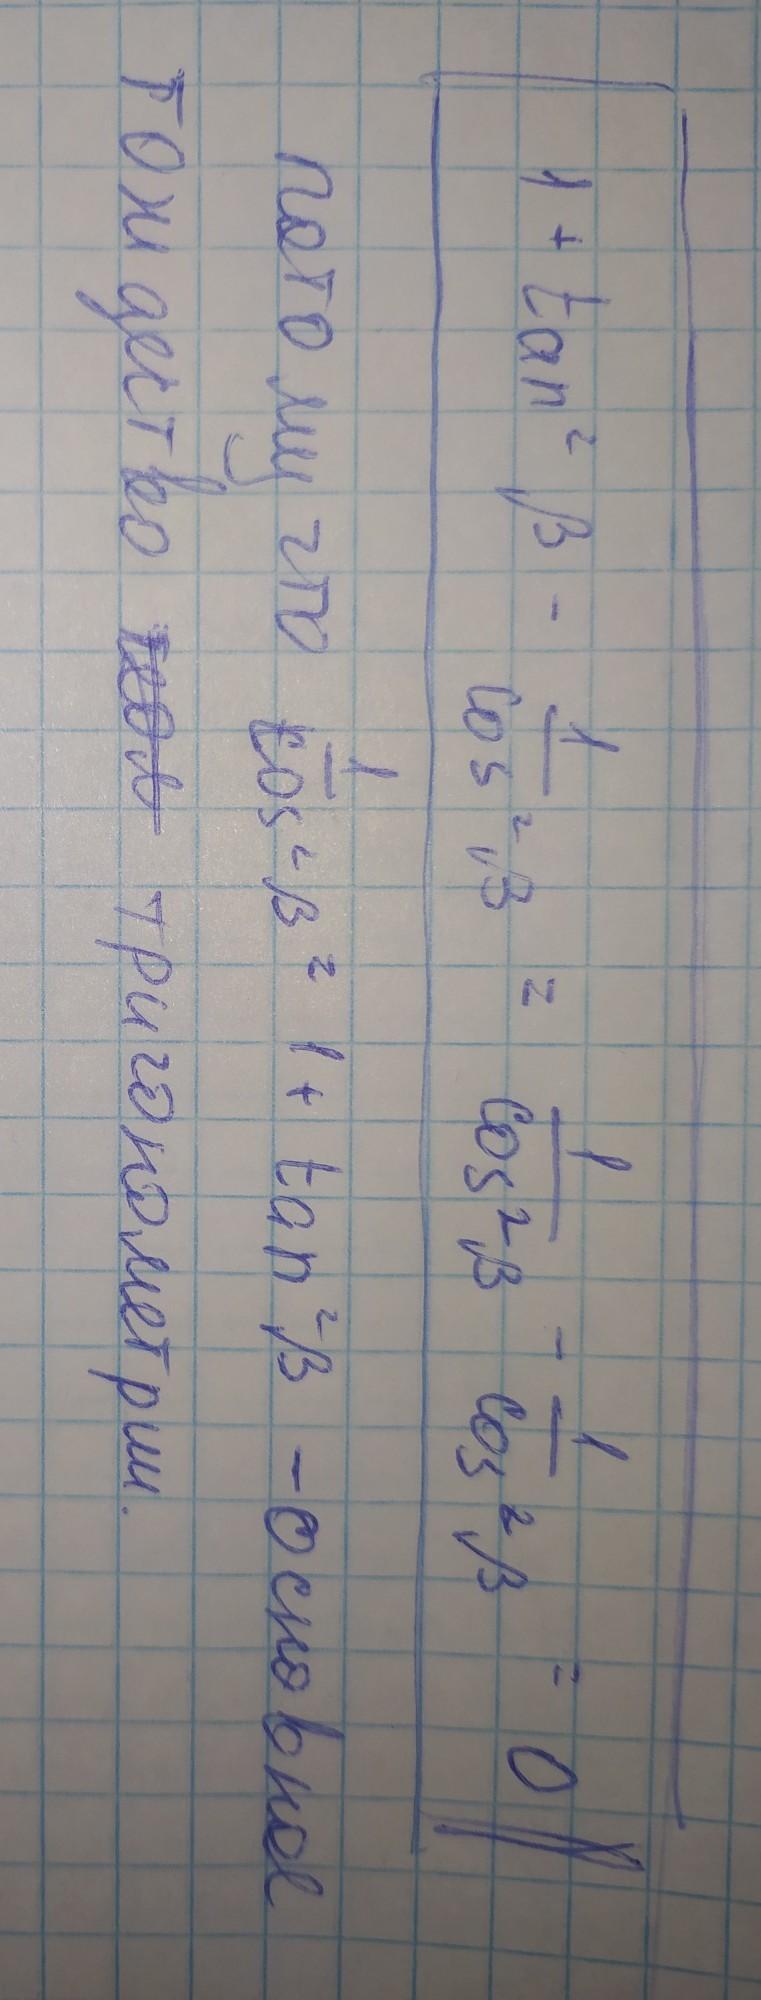 1 + tan² β - 1/cos² β = 1/cos² β - 1/cos² β = 0
потому что 1/cos² β = 1 + tan² β - основное
тождество тригонометрии.